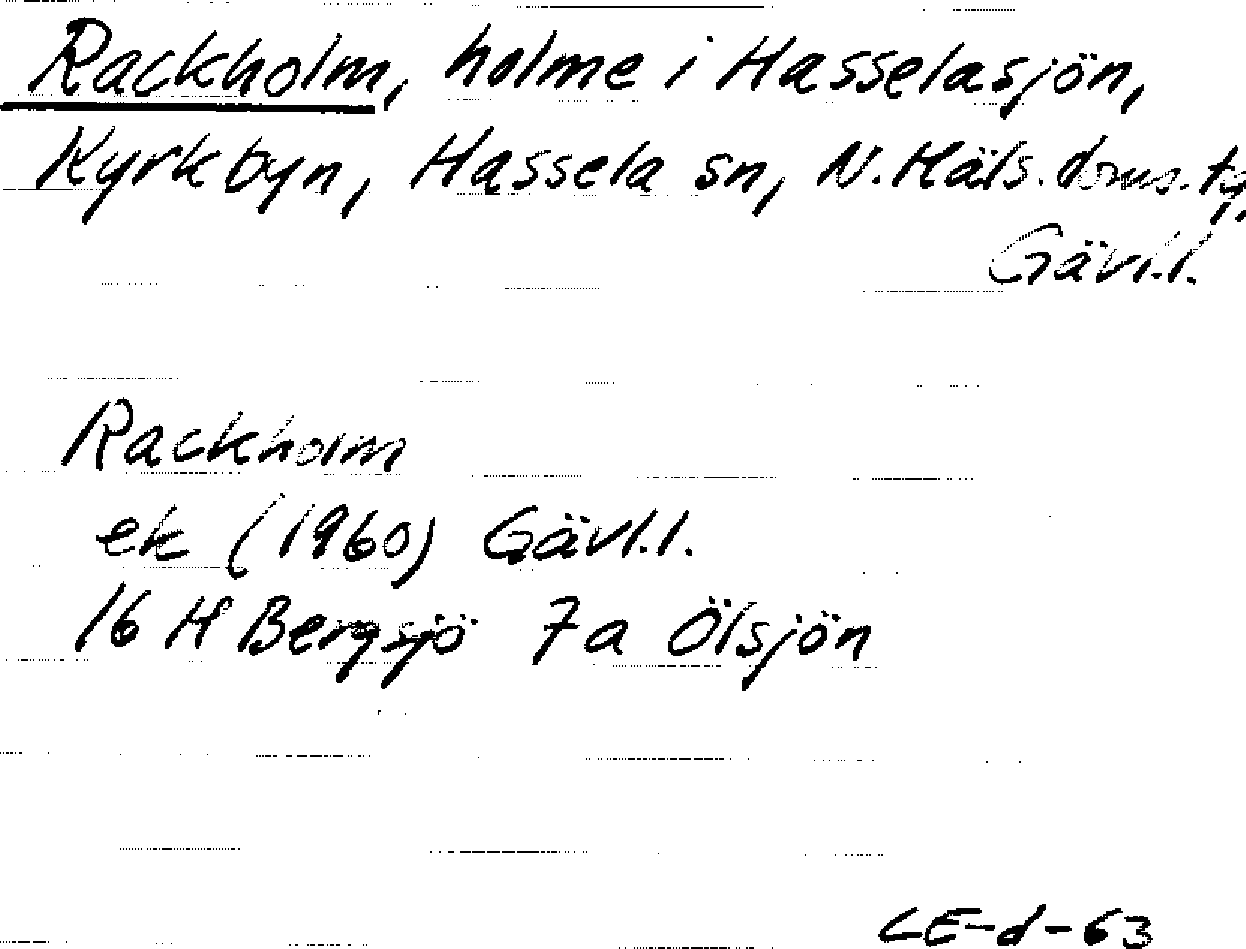 Rackholm, holme i Hasselasjön,
Kyrkbyn, Hassela sn, N. Häls. doms. tg,
Gävl.l.
Rackholm
ek (1960) Gävl.l.
16 H Bergsjö 7a Ölsjön
CE-d-63